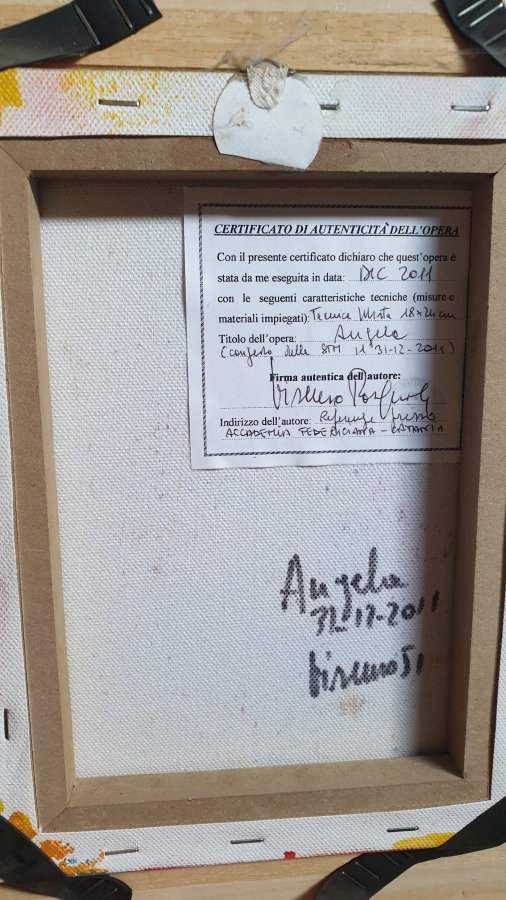 CERTIFICATO DI AUTENTICITÀ DELL'OPERA
Con il presente certificato dichiaro che quest'opera è
stata da me eseguita in data: DIC 2011
con le seguenti caratteristiche tecniche (misure e
materiali impiegati): Tecnica Mista 18x24 cm
Titolo dell'opera: Angela
( della 31-12-2011)
Firma autentica dell'autore:
Indirizzo dell'autore: Referenze presso
ACCADEMIA FEDERICIANA - CATANIA
Angela
31-12-2011